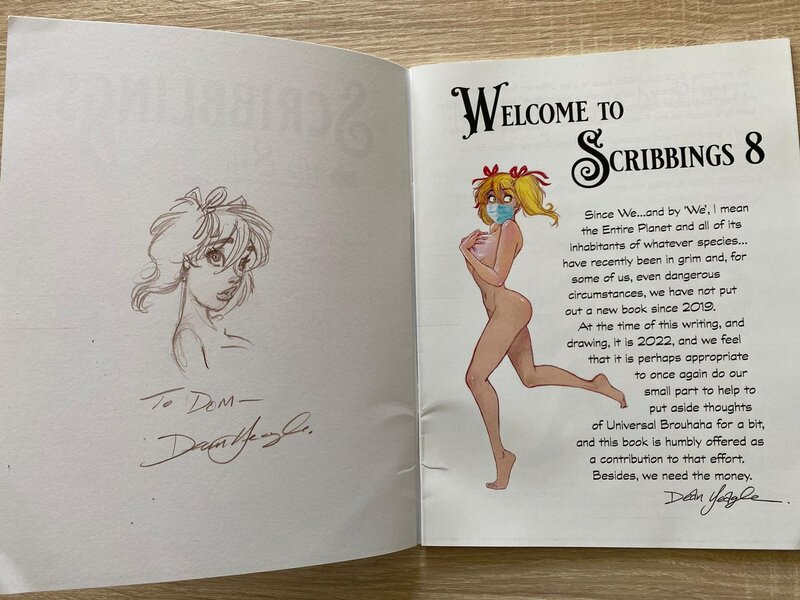 To Dom—
Dean Yeagle.
WELCOME TO
SCRIBBINGS 8
Since We...and by 'We', I mean
the Entire Planet and all of its
inhabitants of whatever species...
have recently been in grim and, for
some of us, even dangerous
circumstances, we have not put
out a new book since 2019.
At the time of this writing, and
drawing, it is 2022, and we feel
that it is perhaps appropriate
to once again do our
small part to help to
put aside thoughts
of Universal Brouhaha for a bit,
and this book is humbly offered as
a contribution to that effort.
Besides, we need the money.
Dean Yeagle.